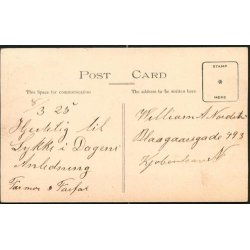 POST CARD
This Space for communication
The address to be written here
STAMP
HERE
8/3 25
Hjertelig til
Lykke i Dagens
Anledning
Farmor & Farfar
William A.
Blaagaardsgade
København N